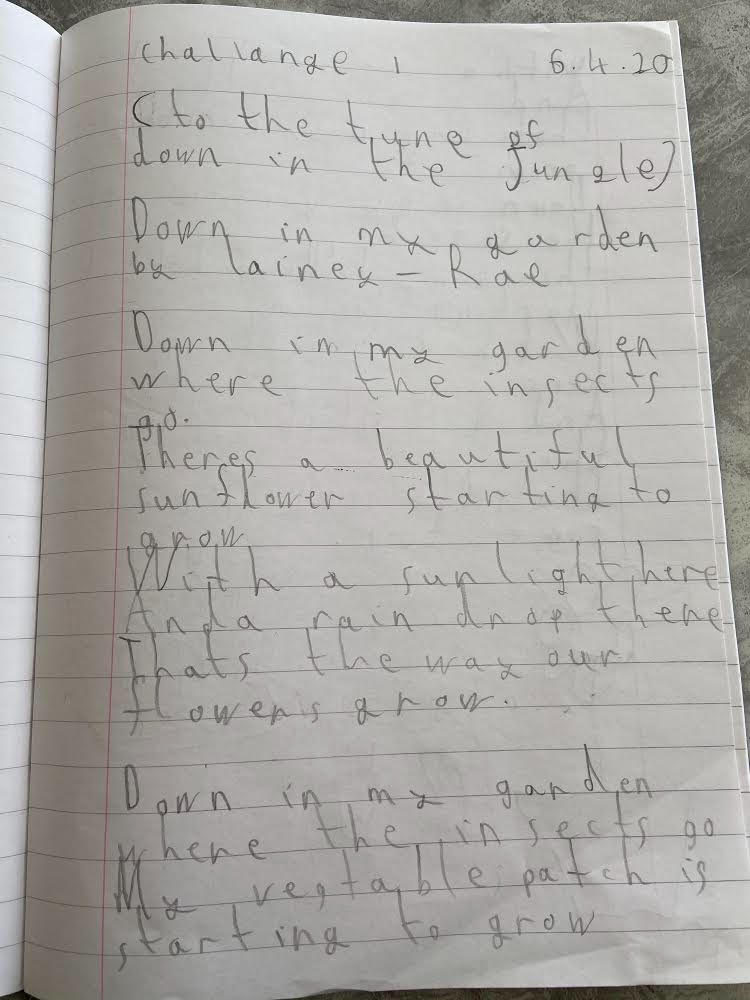 challange 1 6.4.20
(to the tyne of
down in the Jungle)
Down in my garden
by lainey - Rae
Down in my garden
where the insects
go.
Theres a beautiful
sunflower starting to
grow
With a sun light here
And a rain drop there
Thats the way our
flowers grow.
Down in my garden
where the insects go
My vegtable patch is
starting to grow